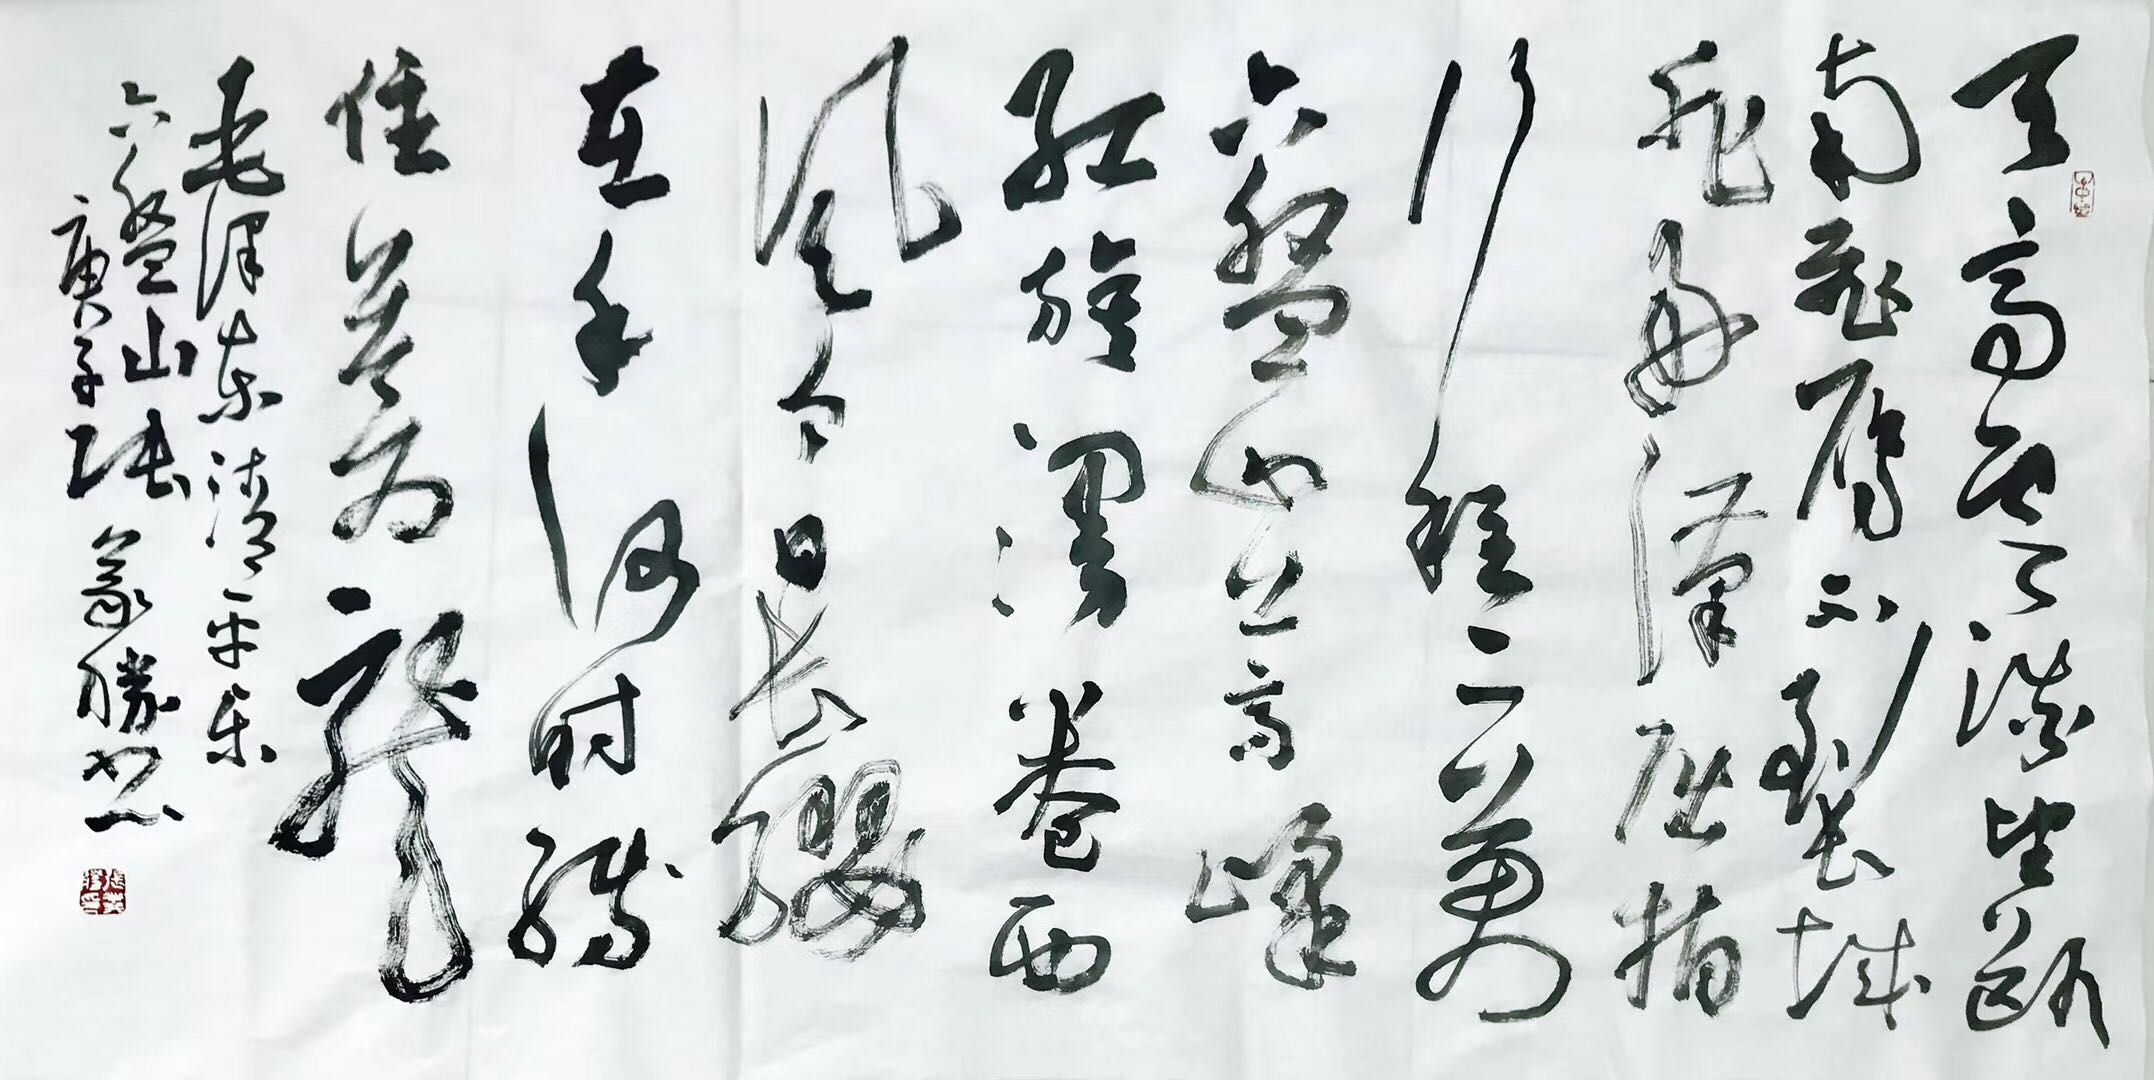 天高雲淡望断
南飛雁不到長城
非好漢屈指
行程二萬
六盤山上高峰
红旗漫卷西
风今日长纓
在手何时缚
住苍龍
毛泽东清平乐
六盤山
庚子张勝书